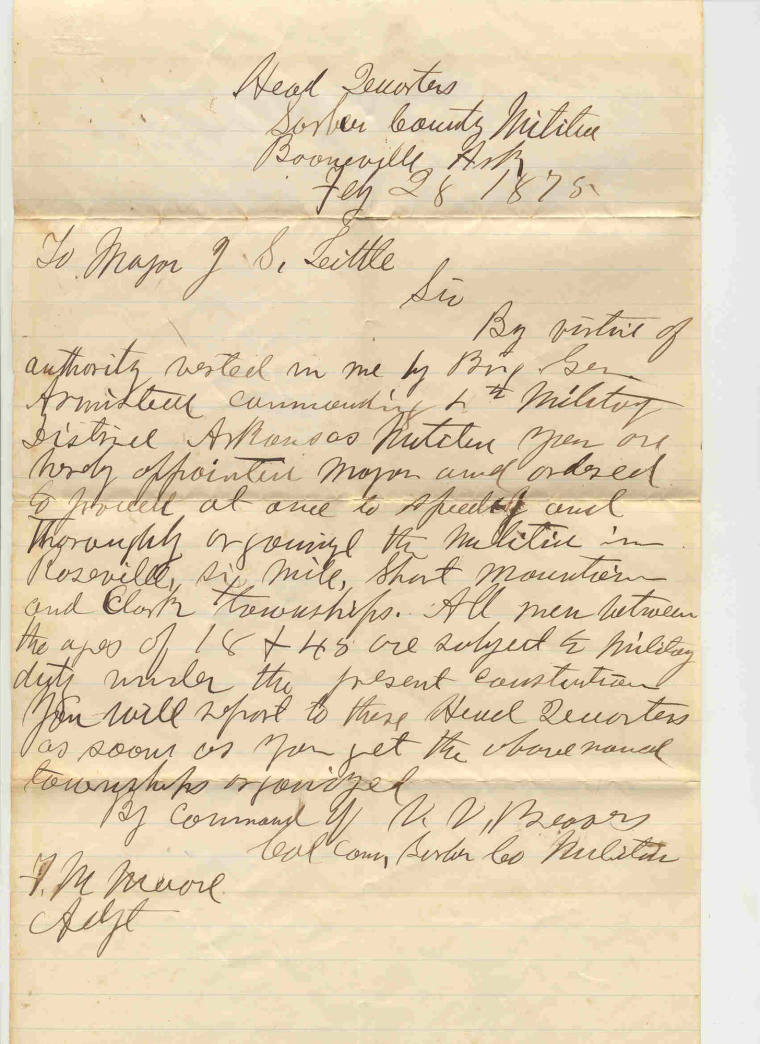 Head Quarters
Sarber County Militia
Booneville Ark
Feby 28 1875
To Major J S. Little
Sir
By virtue of
authority vested in me by Brig. Gen.
Armistead commanding 4th Military
District Arkansas Militia you are
hereby appointed Major and ordered
to proceed at once to speedily and
thoroughly organize the Militia in
Roseville, six Mile, Short Mountain
and Clark townships. All men between
the ages of 18 & 45 are subject to Military
duty under the present constitution
You will report to these Head Quarters
as soon as you get the above named
townships organized
By Command of V. V. Beavers
Col Com, Sarber Co Militia
F. M Moore
Adgt